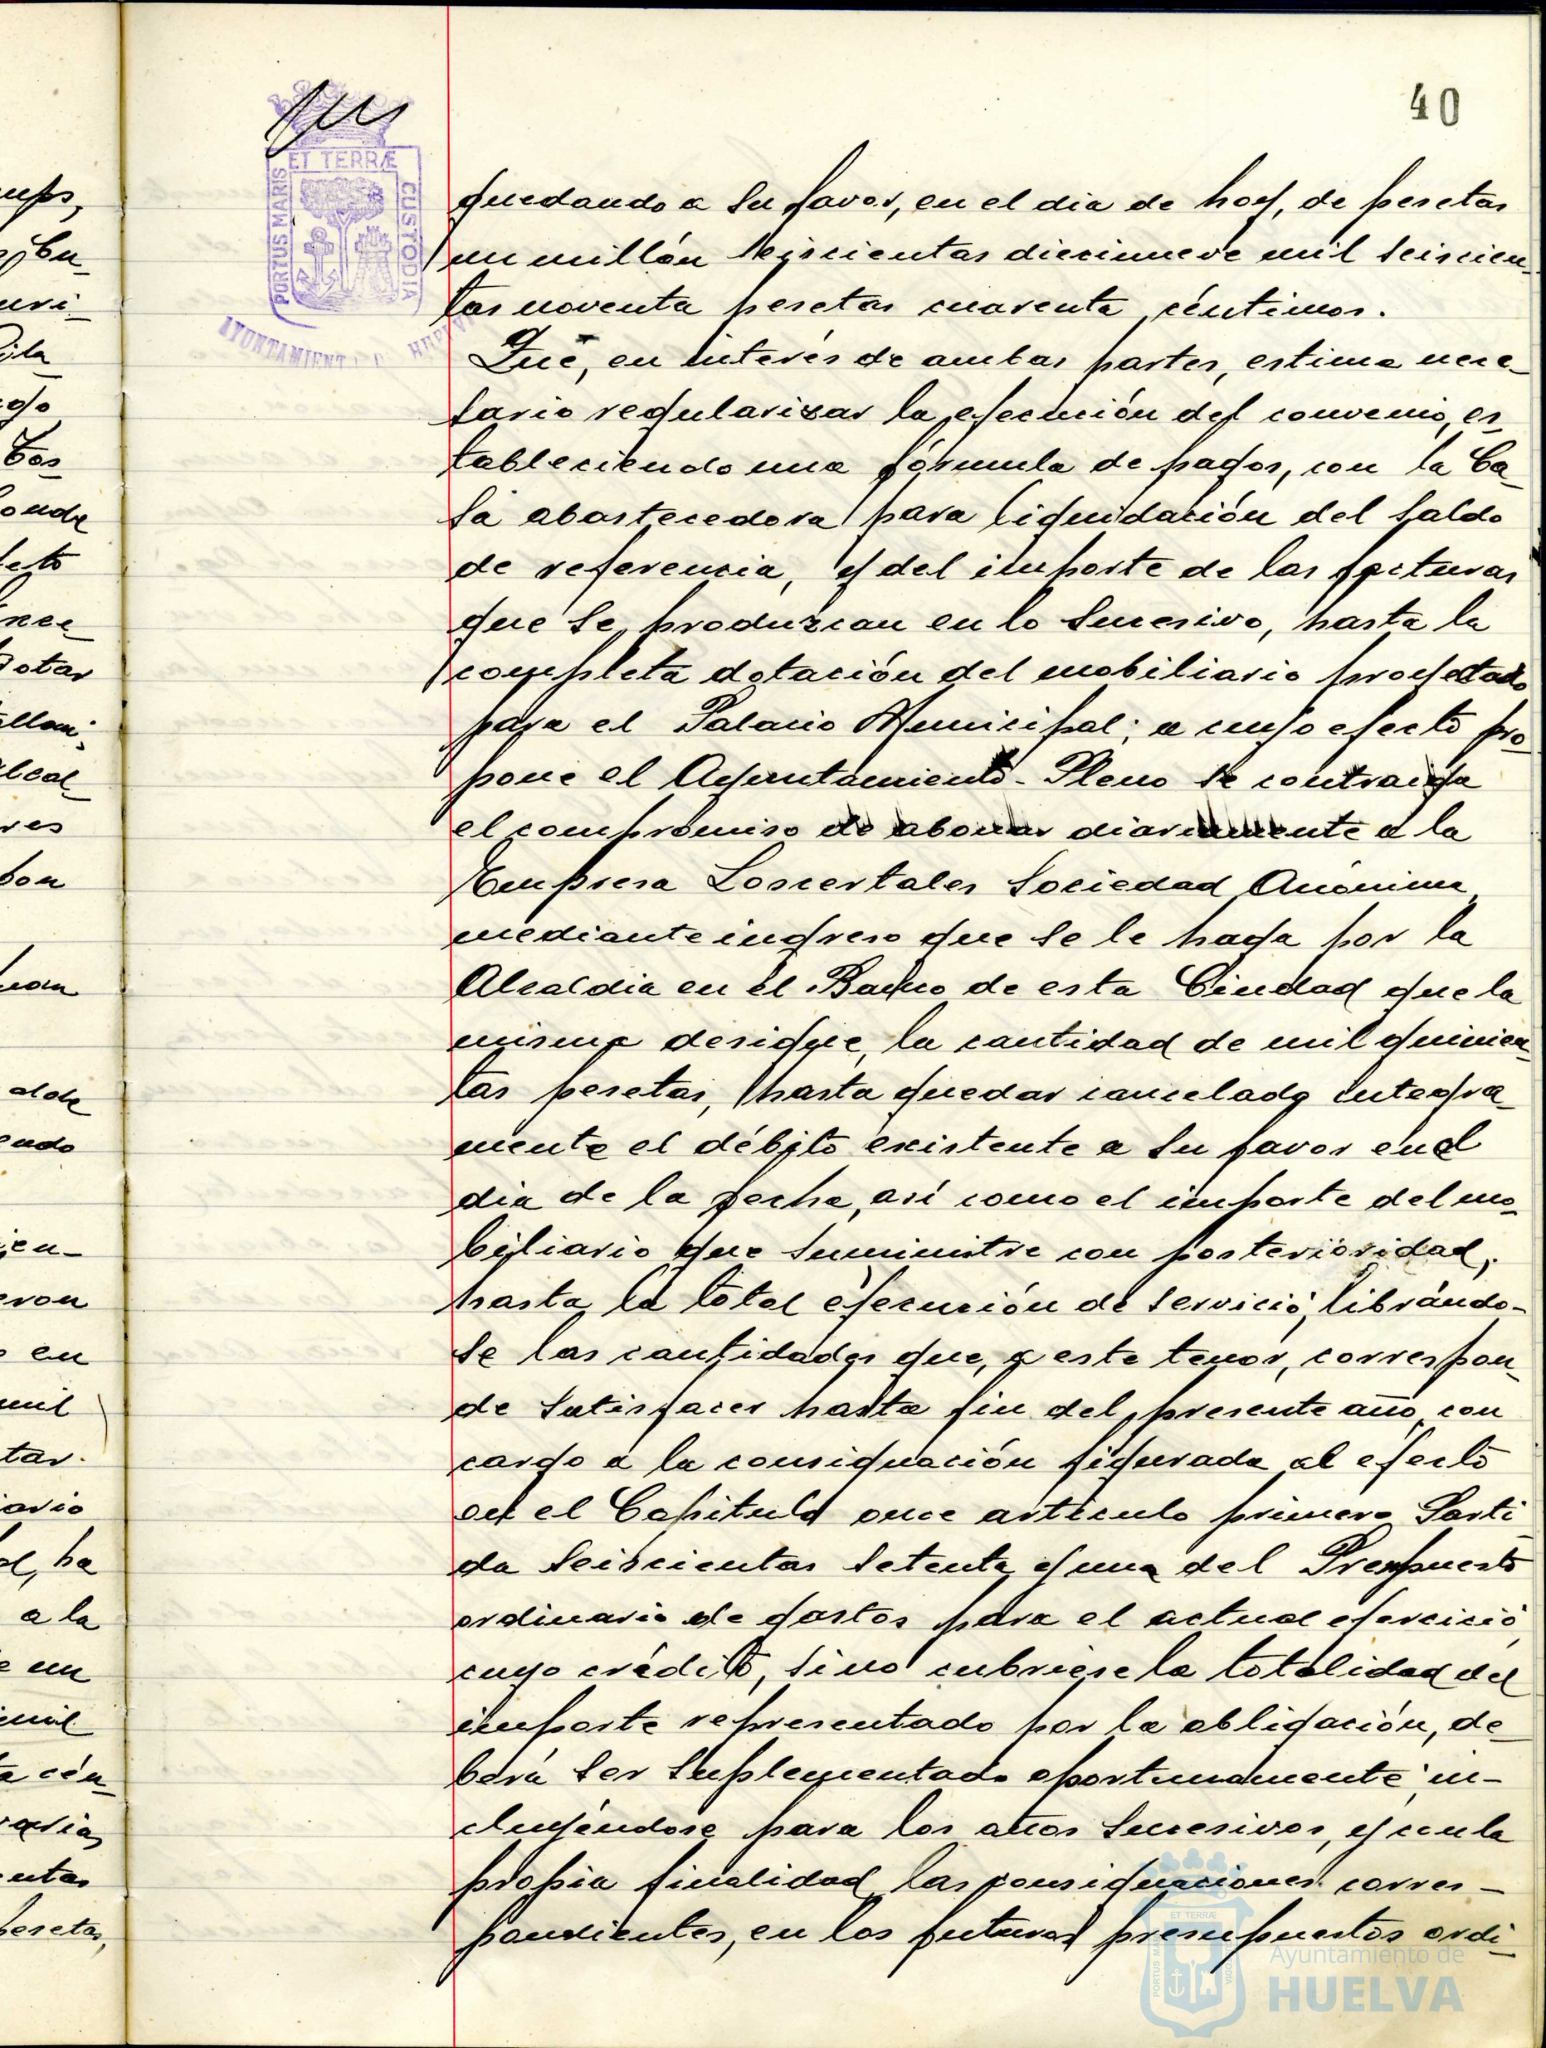 40
ET TERRÆ
PORTUS MARIS
CUSTODIA
AYUNTAMIENTO
quedando a su favor, en el dia de hoy, de pesetas
un millón seiscientas diecinueve mil seiscien-
tas noventa pesetas cuarenta céntimos.
Que, en interés de ambas partes, estima nece-
sario regularizar la ejecución del convenio, es-
tableciendo una fórmula de pagos, con la Ca-
sa abastecedora para liquidación del saldo
de referencia, y del importe de las facturas
que se produzcan en lo sucesivo, hasta la
completa dotación del mobiliario proyectado
para el Palacio Municipal; a cuyo efecto pro-
pone el Ayuntamiento-Pleno se contraiga
el compromiso de abonar diariamente a la
Empresa Loscertales Sociedad Anónima,
mediante ingreso que se le haga por la
Alcaldia en el Banco de esta Ciudad que la
misma designe, la cantidad de mil quinien-
tas pesetas, hasta quedar cancelado integra-
mente el débito existente a su favor en el
dia de la fecha, así como el importe del mo-
biliario que suministre con posterioridad,
hasta la total ejecución de servicio, librándo-
se las cantidades que, a este tenor, correspon-
de satisfacer hasta fin del presente año, con
cargo a la consignación figurada al efecto
en el Capitulo once articulo primero Parti-
da seiscientas setenta y una del Presupuesto
ordinario de gastos para el actual ejercicio,
cuyo crédito, si no cubriese la totalidad del
importe representado por la obligación, de-
berá ser suplementado oportunamente, in-
cluyéndose para los años sucesivos, y con la
propia finalidad, las consignaciones corres-
pondientes, en los futuros presupuestos ordi-
Ayuntamiento de
HUELVA